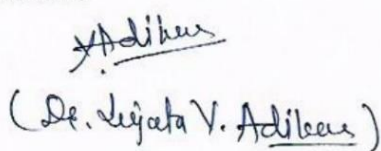 Adikar
(Dr. Sujata V. Adikar)